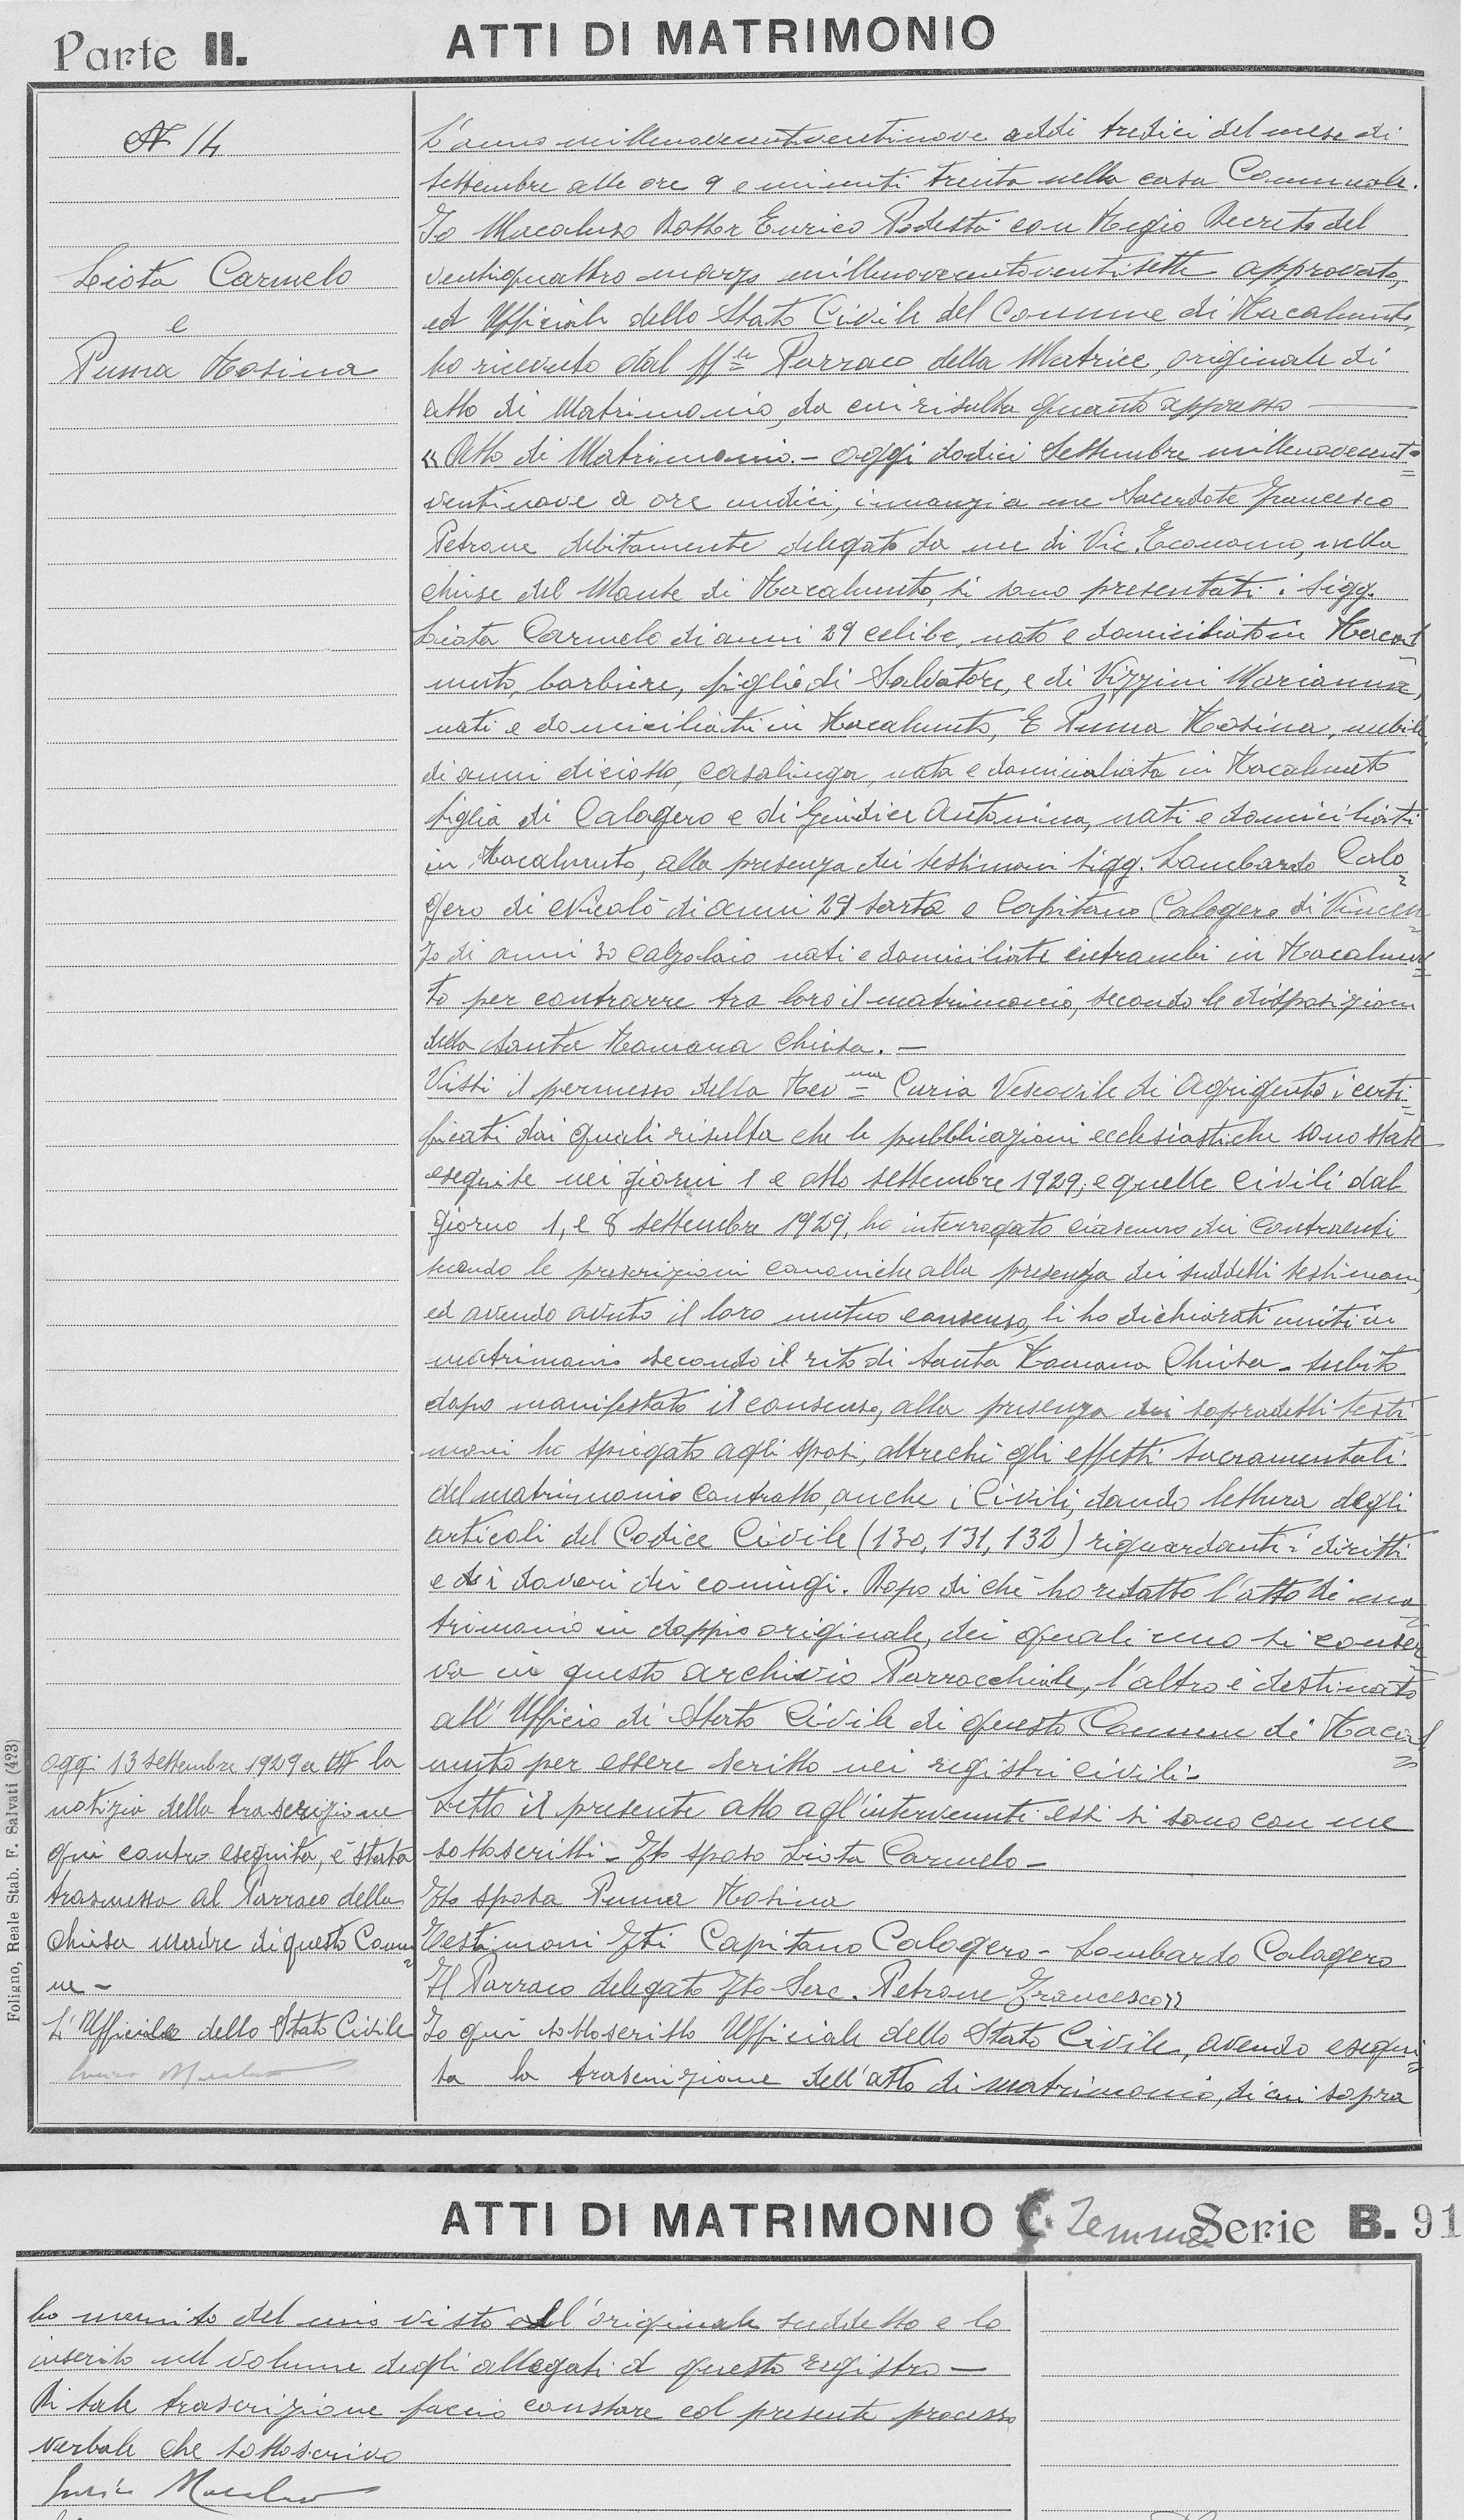 Parte II.
ATTI DI MATRIMONIO
N 14
Liota Carmelo
e
Puma Rosina
L'anno millenovecentoventinove addì tredici del mese di
Settembre alle ore 9 e minuti trenta nella casa Comunale.
Io Macaluso Dottor Enrico Podestà con Regio Decreto del
ventiquattro marzo millenovecentoventisette approvato,
ed Ufficiale dello Stato Civile del Comune di Racalmuto,
ho ricevuto dal ff Parroco della Matrice, originale di
atto di Matrimonio, da cui risulta quanto appresso —
"Atto di Matrimonio. - Oggi dodici Settembre millenovecento=
ventinove a ore undici, innanzi a me Sacerdote Francesco
Petrone debitamente delegato da me di Vic. Economo, nella
chiesa del Monte di Racalmuto, si sono presentati i Sigg.
Liota Carmelo di anni 29 celibe, nato e domiciliato in Racal=
muto, barbiere, figlio di Salvatore, e di Vizzini Marianna,
nati e domiciliati in Racalmuto, E Puma Rosina, nubile,
di anni diciotto, casalinga, nata e domicialiata in Racalmuto
figlia di Calogero e di Giudice Antonina, nati e domiciliati
in Racalmuto, alla presenza dei testimoni Sigg. Lombardo Calo=
gero di Nicolò di anni 29 sarto e Capitano Calogero di Vincen=
zo di anni 30 calzolaio nati e domiciliati entrambi in Racalmu=
to per contrarre tra loro il matrimonio, secondo le disposizioni
della Santa Romana Chiesa. —
Visti il permesso della Rev ma Curia Vescovile di Agrigento i certi=
ficati dai quali risulta che le pubblicazioni ecclesiastiche sono state
eseguite nei giorni 1 e otto settembre 1929, e quelle civili dal
giorno 1, e 8 settembre 1929, ho interrogato ciascuno dei contraenti
secondo le prescrizioni canoniche alla presenza dei suddetti testimoni,
ed avendo avuto il loro mutuo consenso, li ho dichiarati uniti in
matrimonio secondo il rito di Santa Romana Chiesa - Subito
dopo manifestato il consenso, alla presenza dei sopradetti testi=
moni ho spiegato agli sposi, altrechè gli effetti sacramentali
del matrimonio contratto, anche i civili, dando lettura degli
articoli del Codice Civile (130, 131, 132) riguardanti i diritti
e i doveri dei coniugi. Dopo di chè ho redatto l'atto di ma=
trimonio in doppio originale, dei quali uno si conser=
va in questo archivio Parrocchiale, l'altro è destinato
all'Ufficio di Stato Civile di questo Comune di Racal=
muto per essere scritto nei registri civili -
Letto il presente atto agl'intervenuti essi si sono con me
sottoscritti - Fto sposo Liota Carmelo -
Fto sposa Puma Rosina
Testimoni Fti Capitano Calogero - Lombardo Calogero
Il Parroco delegato Fto Sac. Petrone Francesco"
Io qui sottoscritto Ufficiale dello Stato Civile, avendo esegui=
ta la trascrizione dell'atto di matrimonio, di cui sopra
Oggi 13 settembre 1929 a VII la
notizia della trascrizione
qui contro eseguita, è stata
trasmessa al Parroco della
Chiesa Madre di questo Comu=
ne -
L'Ufficiale dello Stato Civile
Enrico Macaluso
Foligno, Reale Stab. F. Salvati (423)
ATTI DI MATRIMONIO Serie B. 91
ho munito del mio visto all'originale suddetto e lo
inserito nel volume degli allegati a questo registro —
Di tale trascrizione faccio constare col presente processo
verbale che sottoscrivo
Enrico Macaluso